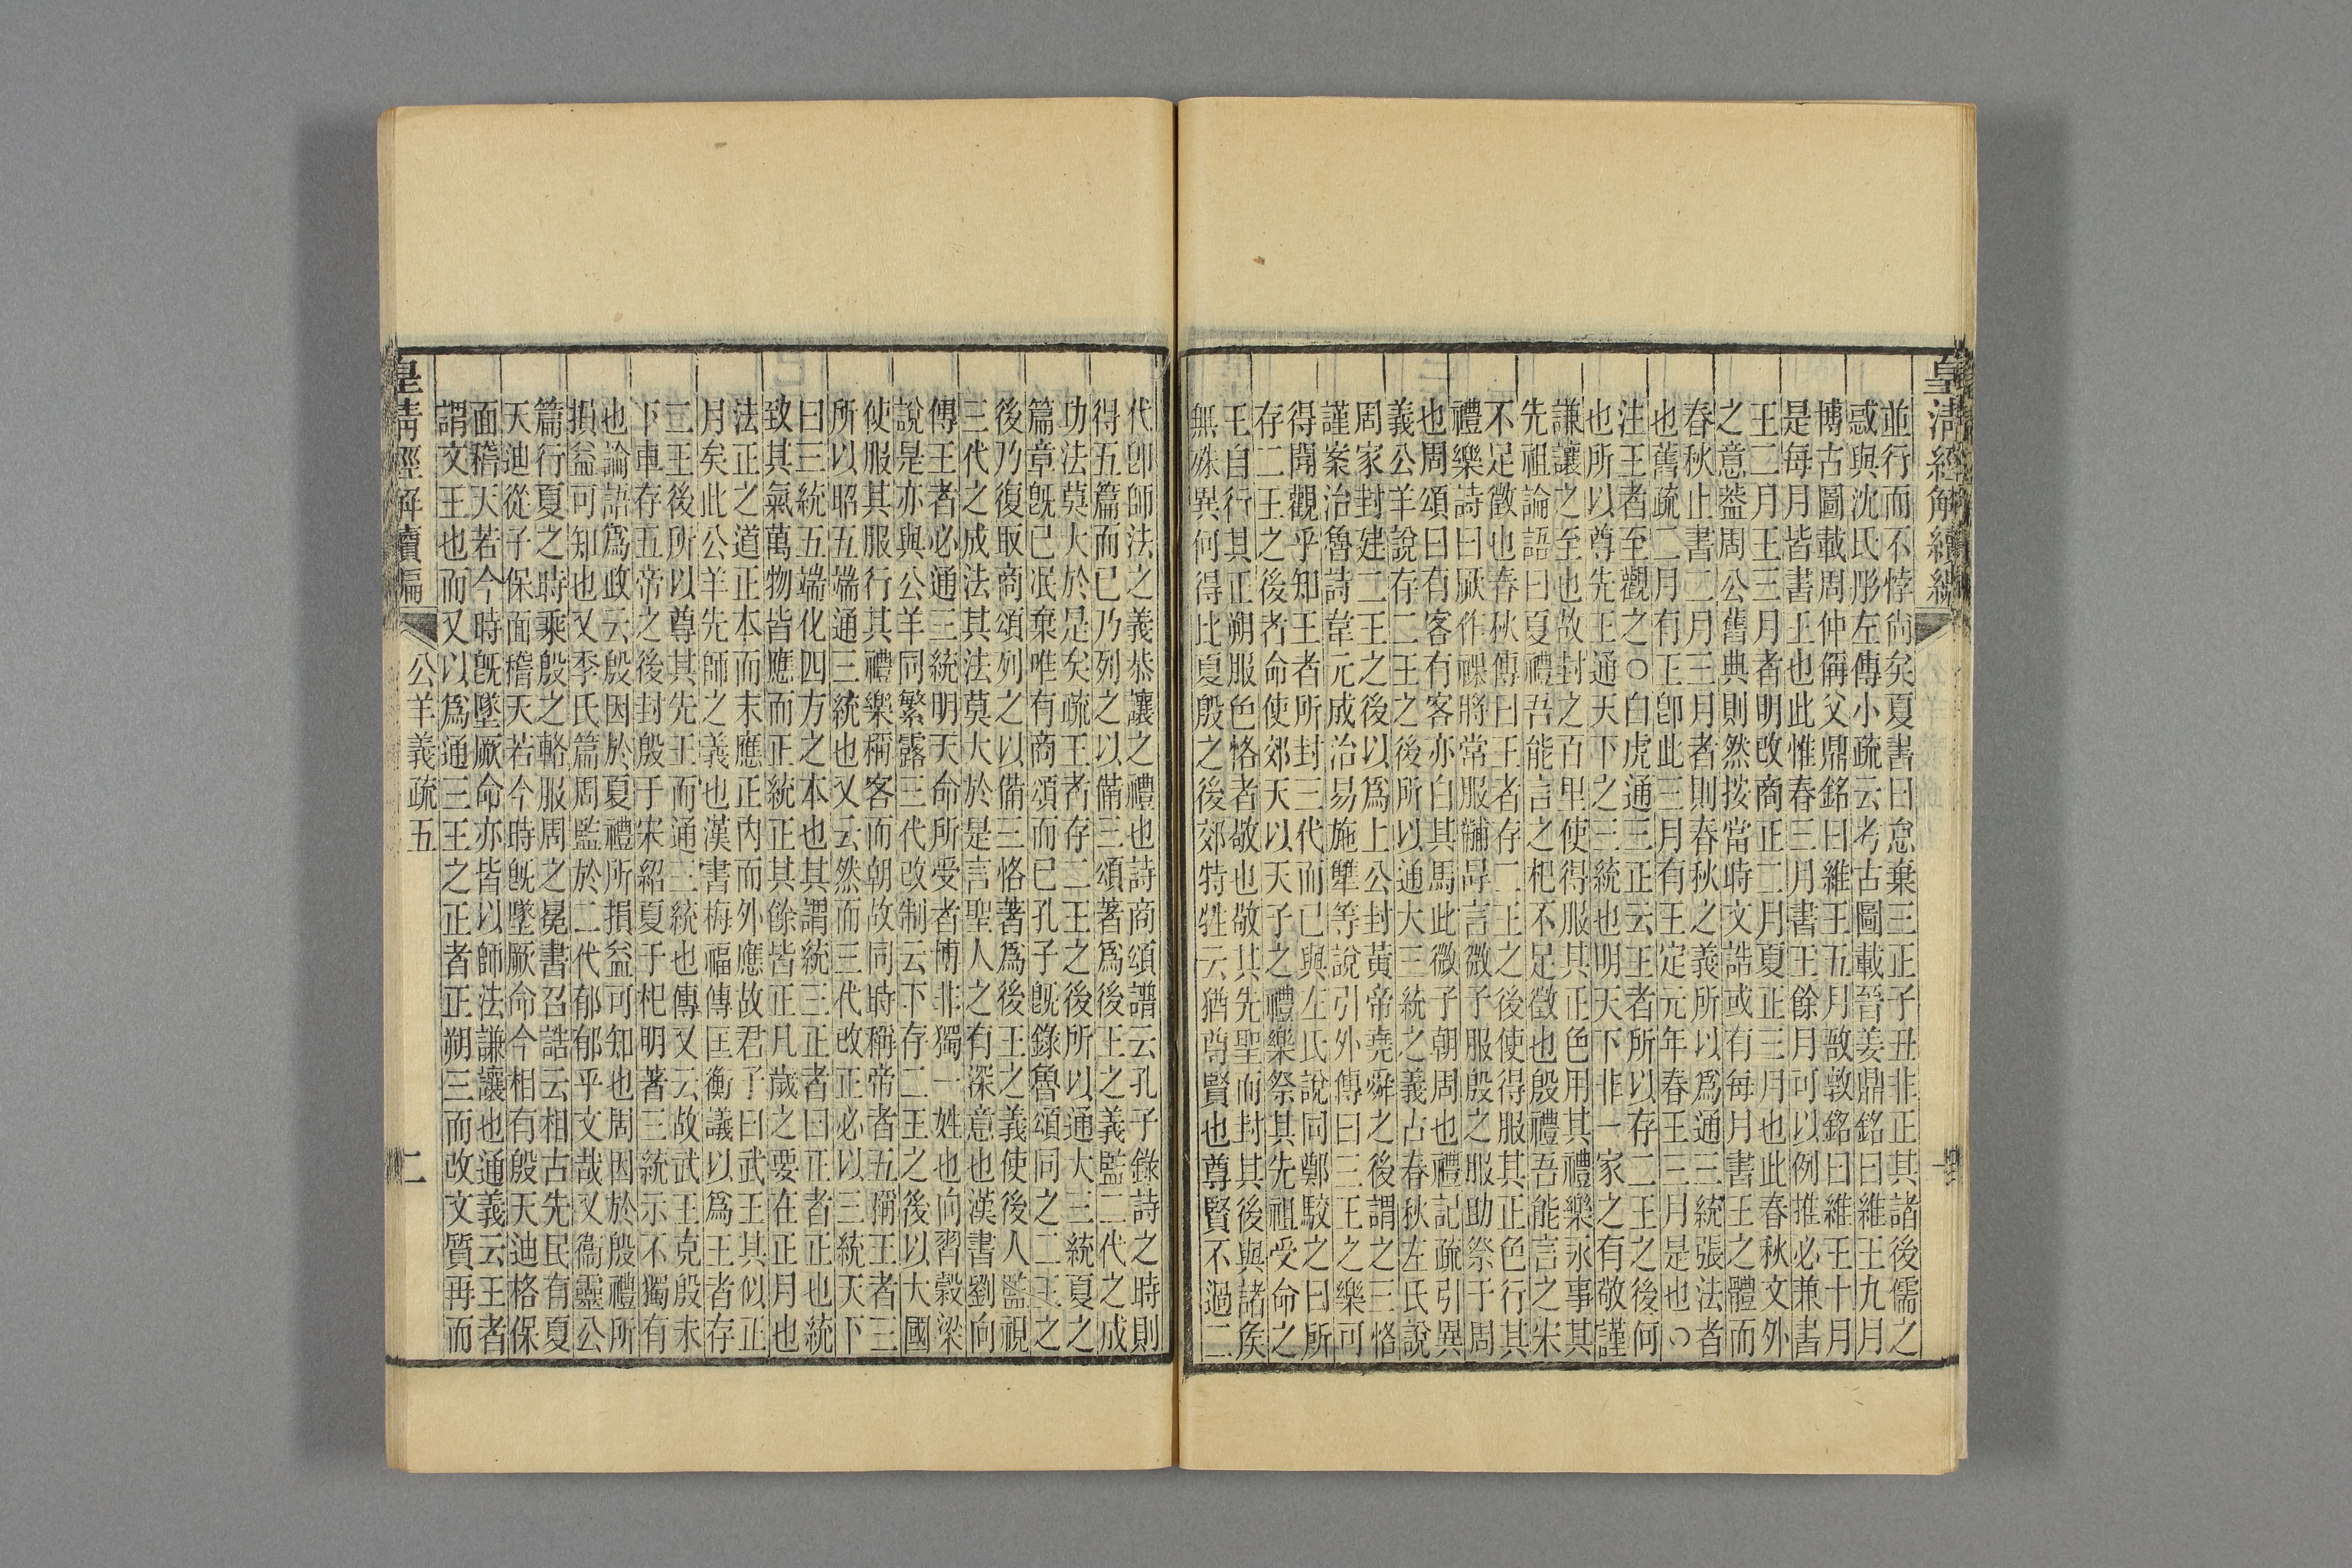 皇清經解續編
並行而不悖尙矣夏書曰怠棄三正子丑非正其諸後儒之
惑與沈氏彤左傳小疏云考古圖載晉姜鼎銘曰維王九月
博古圖載周仲偁父鼎銘曰維王五月敔敦銘曰維王十月
是每月皆書王也此惟春三月書王餘月可以例推必兼書
王二月王三月者明改商正二月夏正三月也此春秋文外
之意葢周公舊典則然按當時文誥或有每月書王之體而
春秋止書二月三月者則春秋之義所以爲通三統張法者
也舊疏二月有正卽此三月有王定元年春王三月是也○
注王者至觀之○白虎通三正云王者所以存二王之後何
也所以尊先王通天下之三統也明天下非一家之有敬謹
謙讓之至也故封之百里使得服其正色用其禮樂永事其
先祖論語曰夏禮吾能言之杞不足徵也殷禮吾能言之宋
不足徵也春秋傳曰王者存二王之後使得服其正色行其
禮樂詩曰厥作祼將常服黼冔言微子服殷之服助祭于周
也周頌曰有客有客亦白其馬此微子朝周也禮記疏引異
義公羊說存二王之後所以通大三統之義古春秋左氏說
周家封建二王之後以爲上公封黃帝堯舜之後謂之三恪
謹案治魯詩韋元成治易施犨等說引外傳曰三王之樂可
得聞觀乎知王者所封三代而已與左氏說同鄭駁之曰所
存二王之後者命使郊天以天子之禮樂祭其先祖受命之
王自行其正朔服色恪者敬也敬其先聖而封其後與諸矦
無殊異何得比夏殷之後郊特牲云猶尊賢也尊賢不過二
代卽師法之義恭讓之禮也詩商頌譜云孔子錄詩之時則
得五篇而已乃列之以備三頌著爲後王之義監二代之成
功法莫大於是矣疏王者存二王之後所以通大三統夏之
篇章旣已泯棄唯有商頌而已孔子旣錄魯頌同之二王之
後乃復取商頌列之以備三恪著爲後王之義使後人監視
三代之成法其法莫大於是言聖人之有深意也漢書劉向
傳王者必通三統明天命所受者博非獨一姓也向習穀梁
說是亦與公羊同繁露三代改制云下存二王之後以大國
使服其服行其禮樂稱客而朝故同時稱帝者五稱王者三
所以昭五端通三統也又云然而三代改正必以三統天下
曰三統五端化四方之本也其謂統三正者曰正者正也統
致其氣萬物皆應而正統正其餘皆正凡歲之要在正月也
法正之道正本而末應正內而外應故君子曰武王其似正
月矣此公羊先師之義也漢書梅福傳匡衡議以爲王者存
二王後所以尊其先王而通三統也傳又云故武王克殷未
下車存五帝之後封殷于宋紹夏于杞明著三統示不獨有
也論語爲政云殷因於夏禮所損益可知也周因於殷禮所
損益可知也又季氏篇周監於二代郁郁乎文哉又衞靈公
篇行夏之時乘殷之輅服周之冕書召誥云相古先民有夏
天迪從子保面稽天若今時旣墜厥命今相有殷天迪格保
面稽天若今時旣墜厥命亦皆以師法謙讓也通義云王者
謂文王也而又以爲通三王之正者正朔三而改文質再而
皇清經解續編
公羊義疏五
二